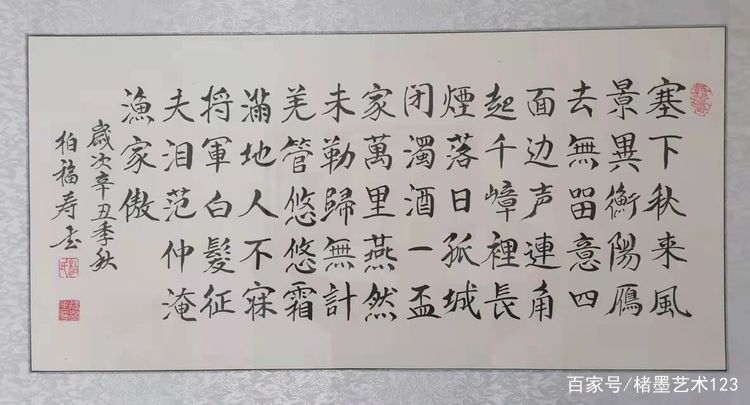 塞下秋来風
景異衡陽鴈
去無㽞意四
面边声連角
起千嶂裡長
煙落日孤城
闭濁酒一盃
家萬里燕然
未勒歸無計
羌管悠悠霜
滿地人不寐
将軍白髮征
夫泪范仲淹
漁家傲
歲次辛丑季秋
柏福寿书
百家号/楮墨艺术123